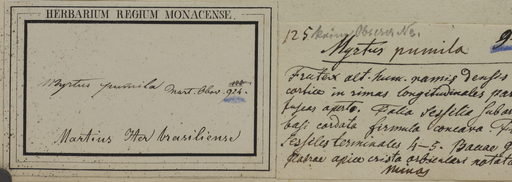 HERBARIUM REGIUM MONACENSE.
Myrtus pumila Mart. Obs. 924.
Martius Iter brasiliense
125 Observ. No.
Myrtus pumila
Frutex alt. hum. ramis densis
cortice in rimas longitudinales
fuscas aperto. Folia sessilia
basi cordata firmula concava
sessiles terminales 4-5. Baccae
glabrae apice crista orbiculari notata
Minas